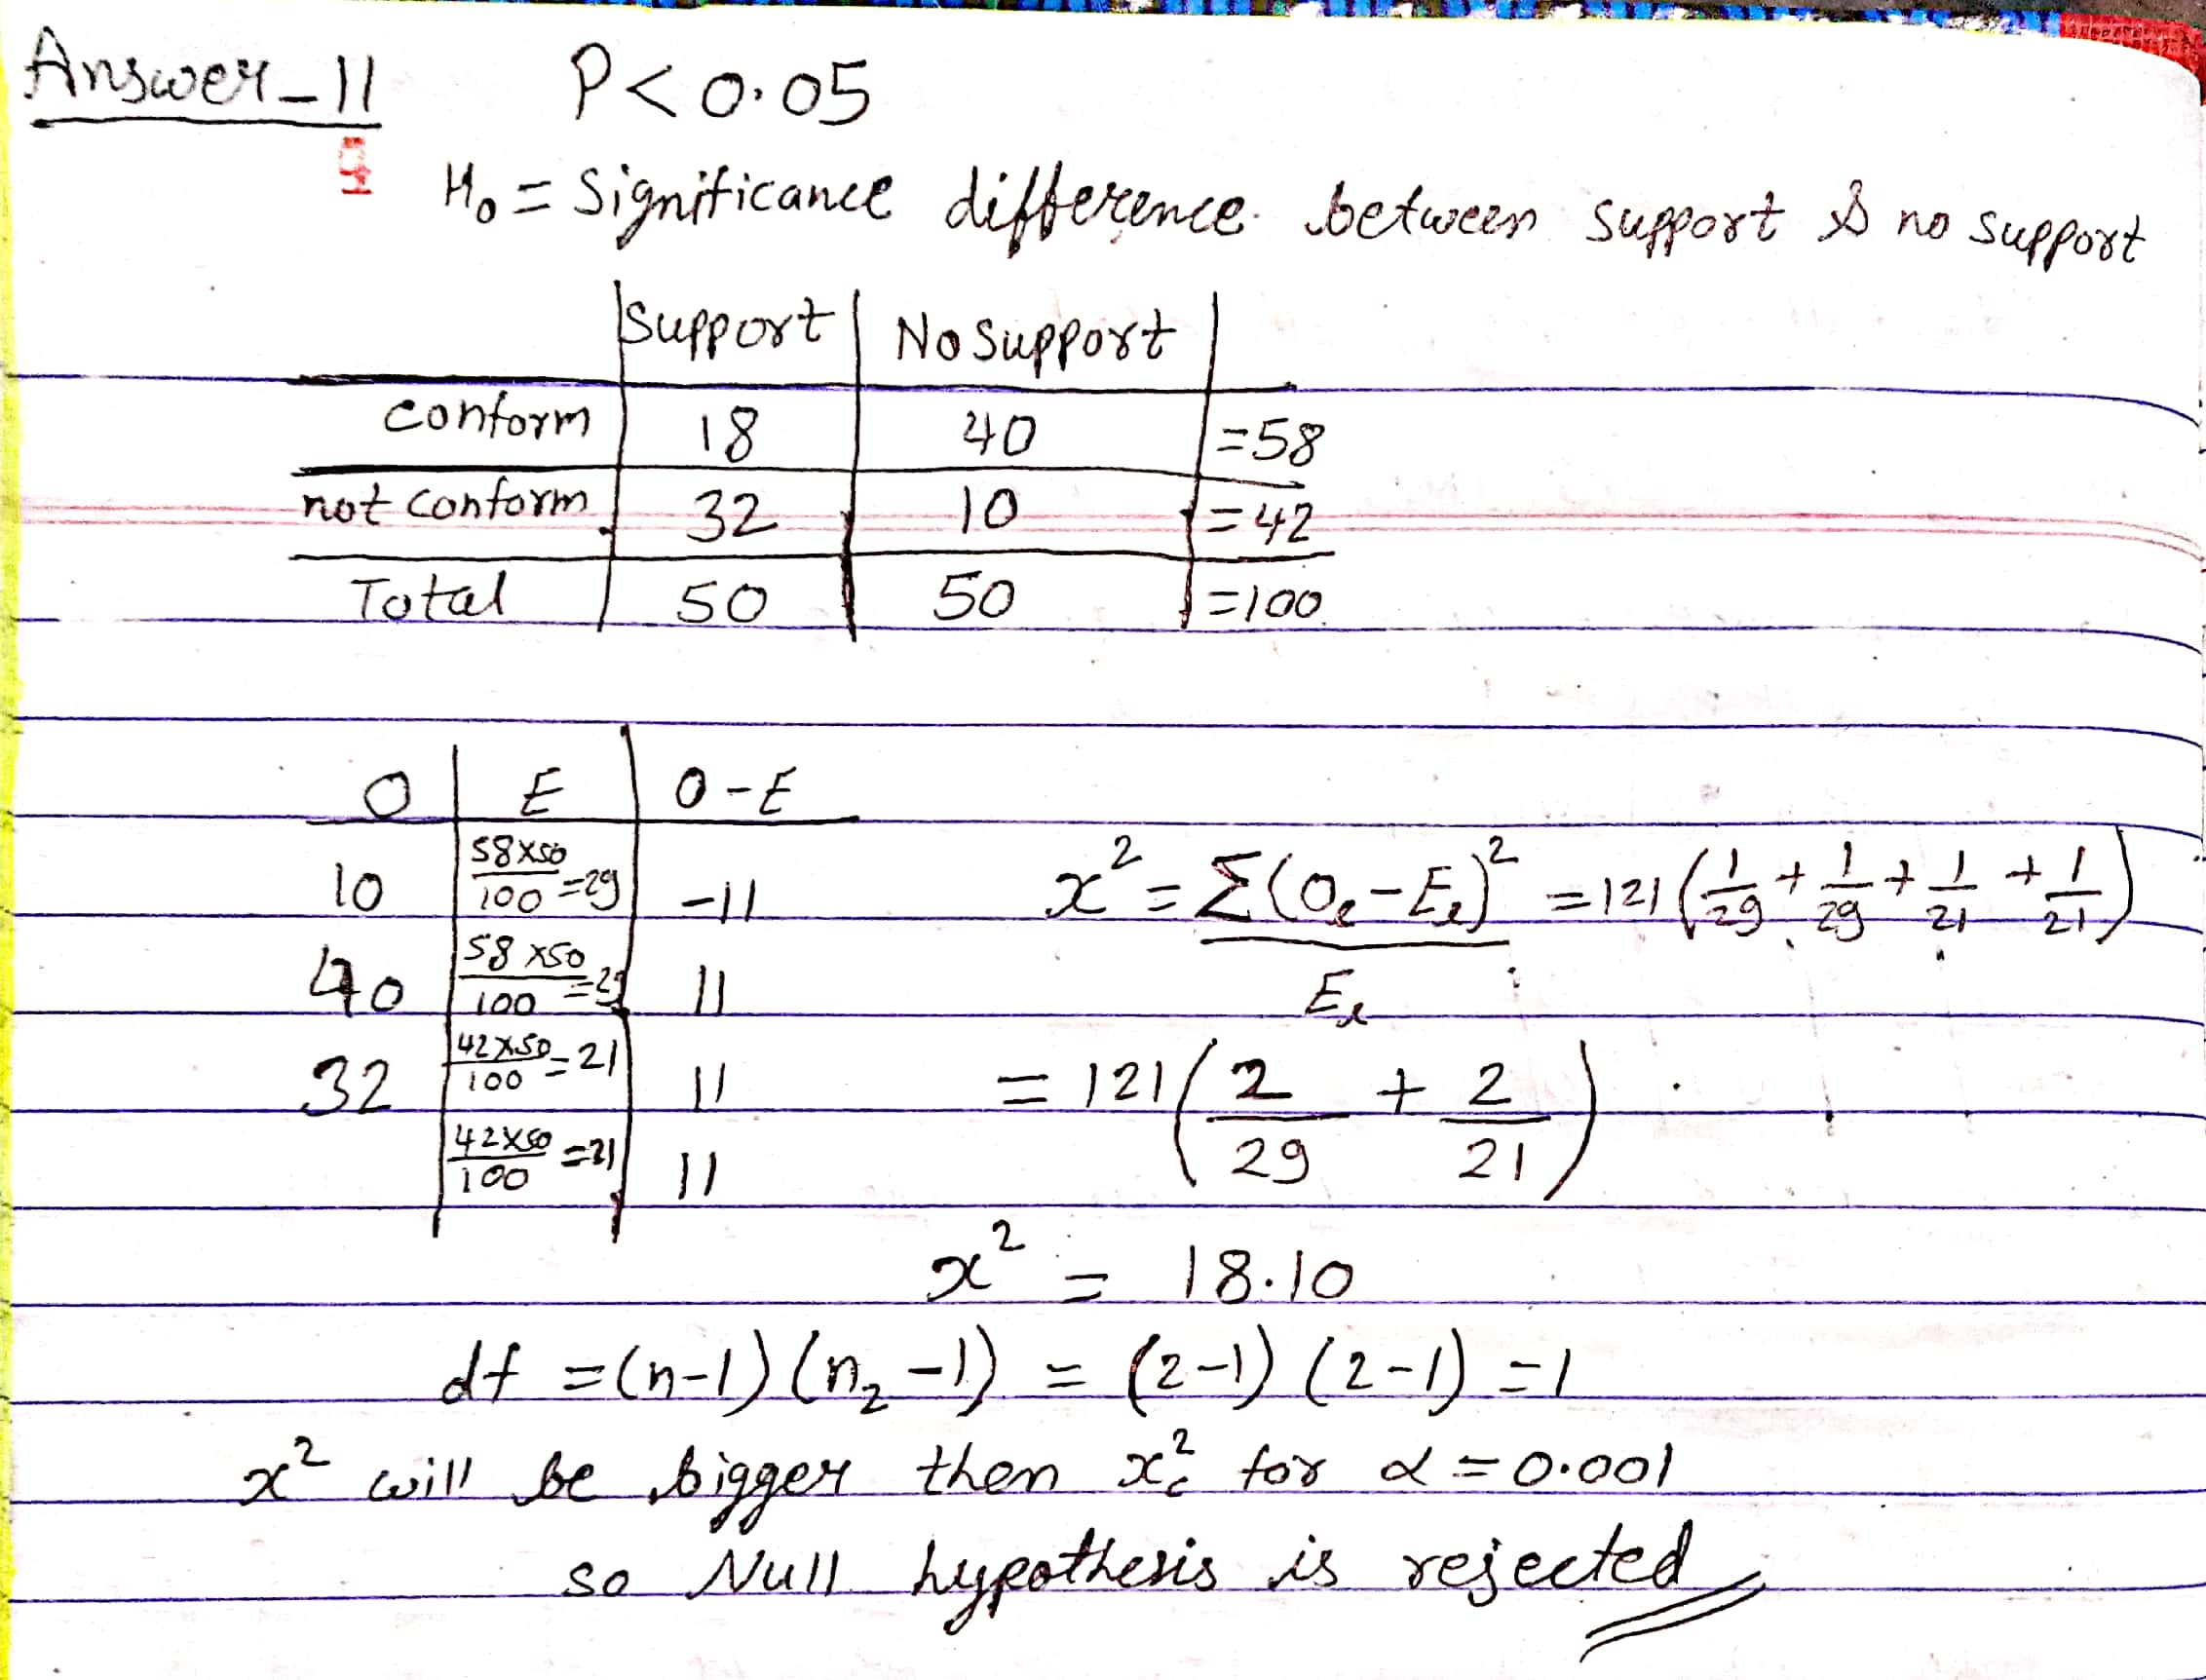 Answer-11 P<0.05
H₀ = Significance difference between support & no support
Support | No Support |
conform | 18 | 40 | =58
not conform | 32 | 10 | =42
Total | 50 | 50 | =100
O | E | O-E
10 | 58x50/100 =29 | -11
x² = Σ(Oe-Ee)²/Ee = 121(1/29 + 1/29 + 1/21 + 1/21)
40 | 58x50/100 =29 | 11
32 | 42x50/100 =21 | 11
= 121(2/29 + 2/21)
42x50/100 =21 | 11
x² = 18.10
df =(n-1)(n₂-1) = (2-1)(2-1) =1
x² will be bigger then x²c for α=0.001
so Null hypothesis is rejected